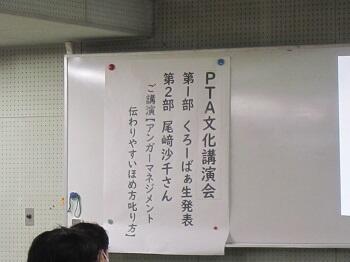 PTA文化講演会
第Ⅰ部 くろーばぁ生発表
第2部 尾﨑沙千さん
ご講演【アンガーマネジメント
伝わりやすいほめ方叱り方】